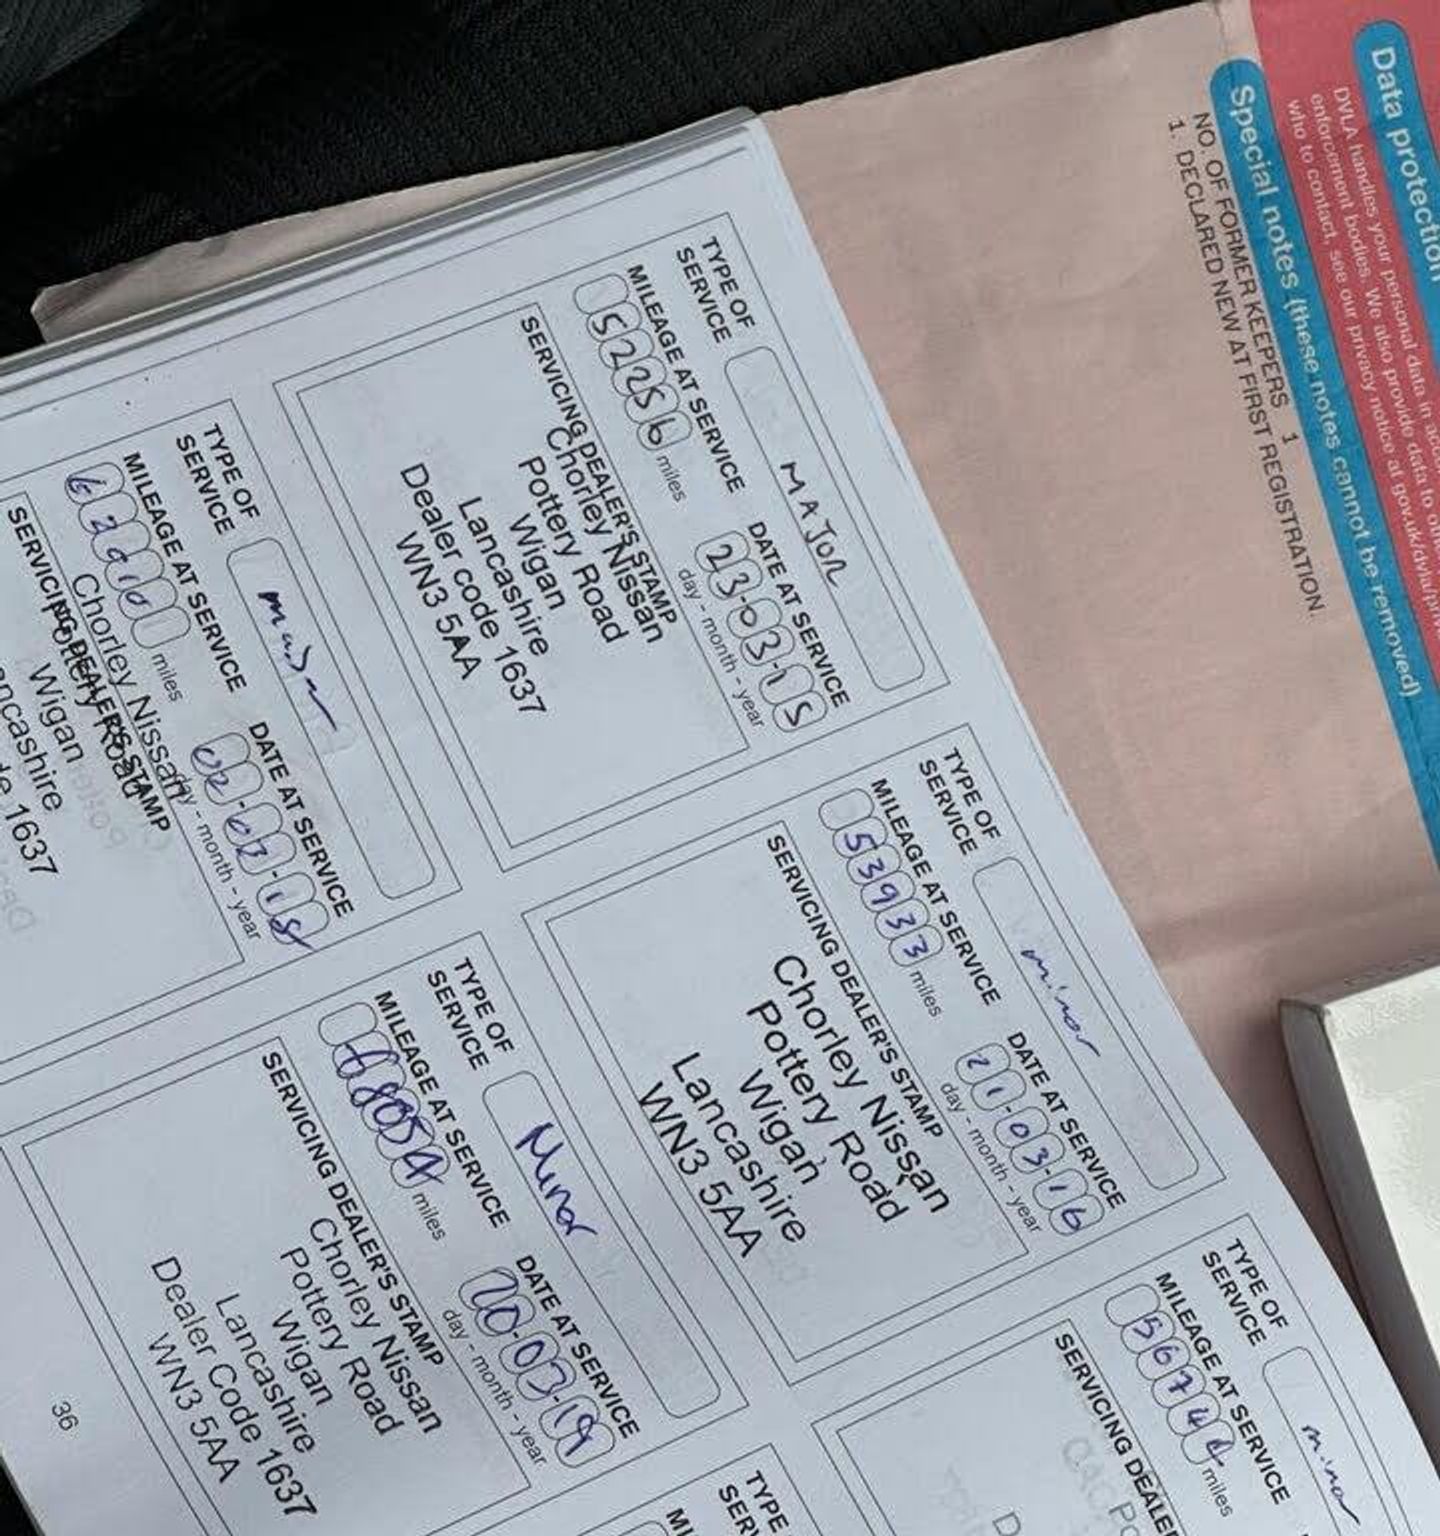 Data protection
DVLA handles your personal data in
enforcement bodies. We also provide data to
who to contact, see our privacy notice at gov.uk/dvla/
Special notes (these notes cannot be removed)
NO. OF FORMER KEEPERS 1
1. DECLARED NEW AT FIRST REGISTRATION.
TYPE OF SERVICE
MAJOR
MILEAGE AT SERVICE
52256 miles
DATE AT SERVICE
23-03-15
day - month - year
SERVICING DEALER'S STAMP
Chorley Nissan
Pottery Road
Wigan
Lancashire
Dealer code 1637
WN3 5AA
TYPE OF SERVICE
minor
MILEAGE AT SERVICE
53933 miles
DATE AT SERVICE
21-03-16
day - month - year
SERVICING DEALER'S STAMP
Chorley Nissan
Pottery Road
Wigan
Lancashire
WN3 5AA
TYPE OF SERVICE
MILEAGE AT SERVICE
miles
SERVICING DEALER
TYPE OF SERVICE
MILEAGE AT SERVICE
miles
DATE AT SERVICE
day - month - year
SERVICING DEALER'S STAMP
Chorley Nissan
Pottery Road
Wigan
1637
TYPE OF SERVICE
Minor
MILEAGE AT SERVICE
68054 miles
DATE AT SERVICE
20-03-19
day - month - year
SERVICING DEALER'S STAMP
Chorley Nissan
Pottery Road
Wigan
Lancashire
Dealer Code 1637
WN3 5AA
TYPE
36